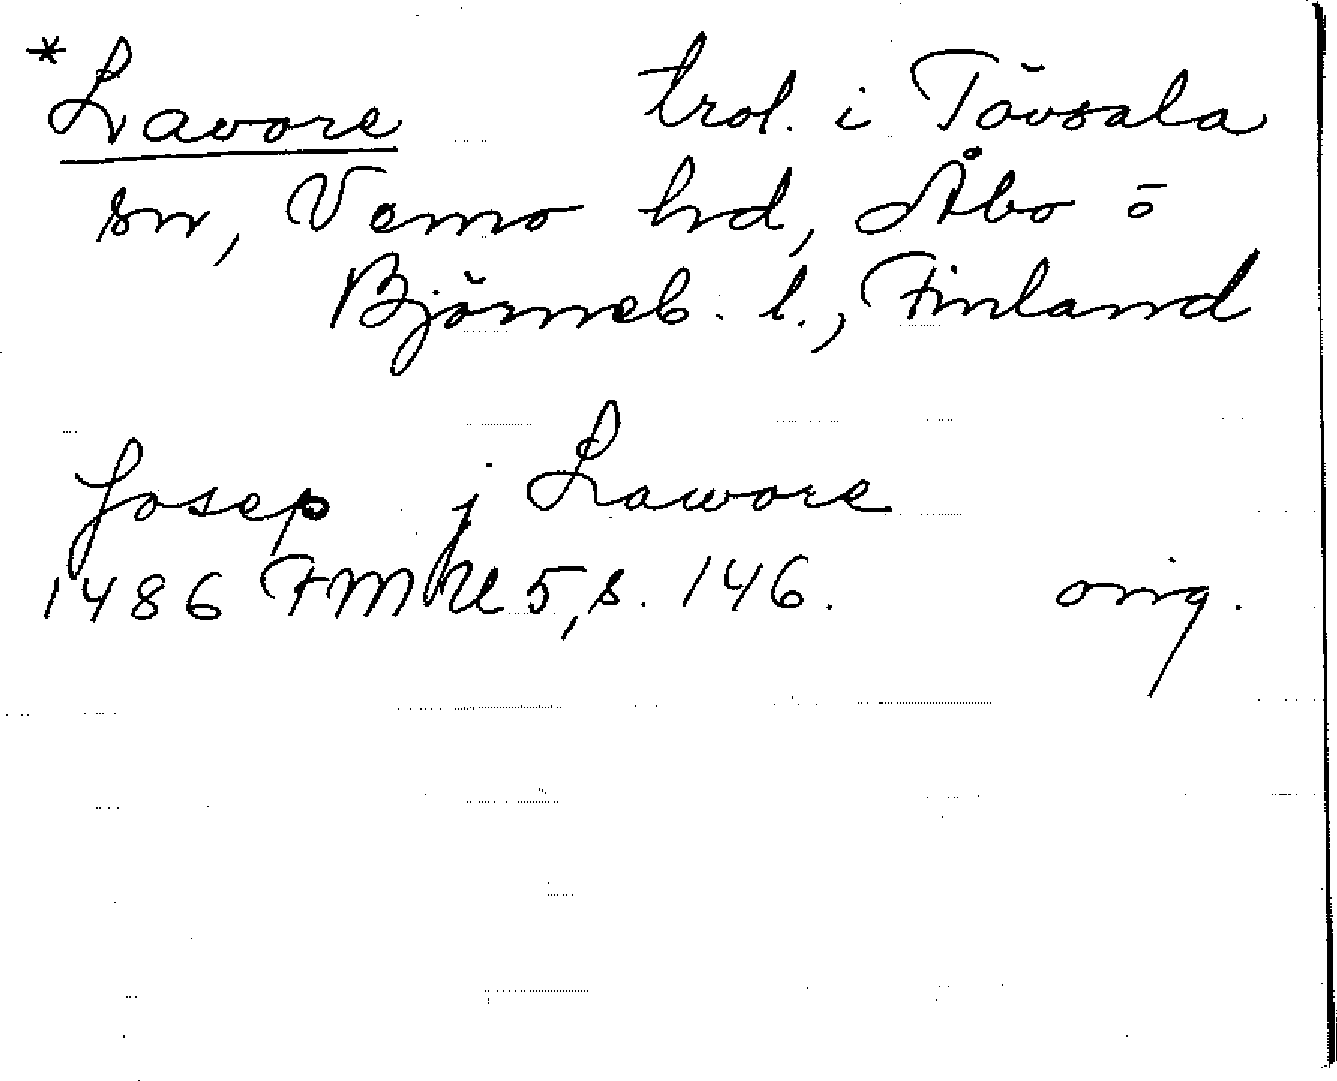 *Lavore trol. i Tövsala
sn, Vemo hd, Åbo ö
Björneb. l., Finland
Josep j Lawore
1486 FMU 5, s. 146. orig.